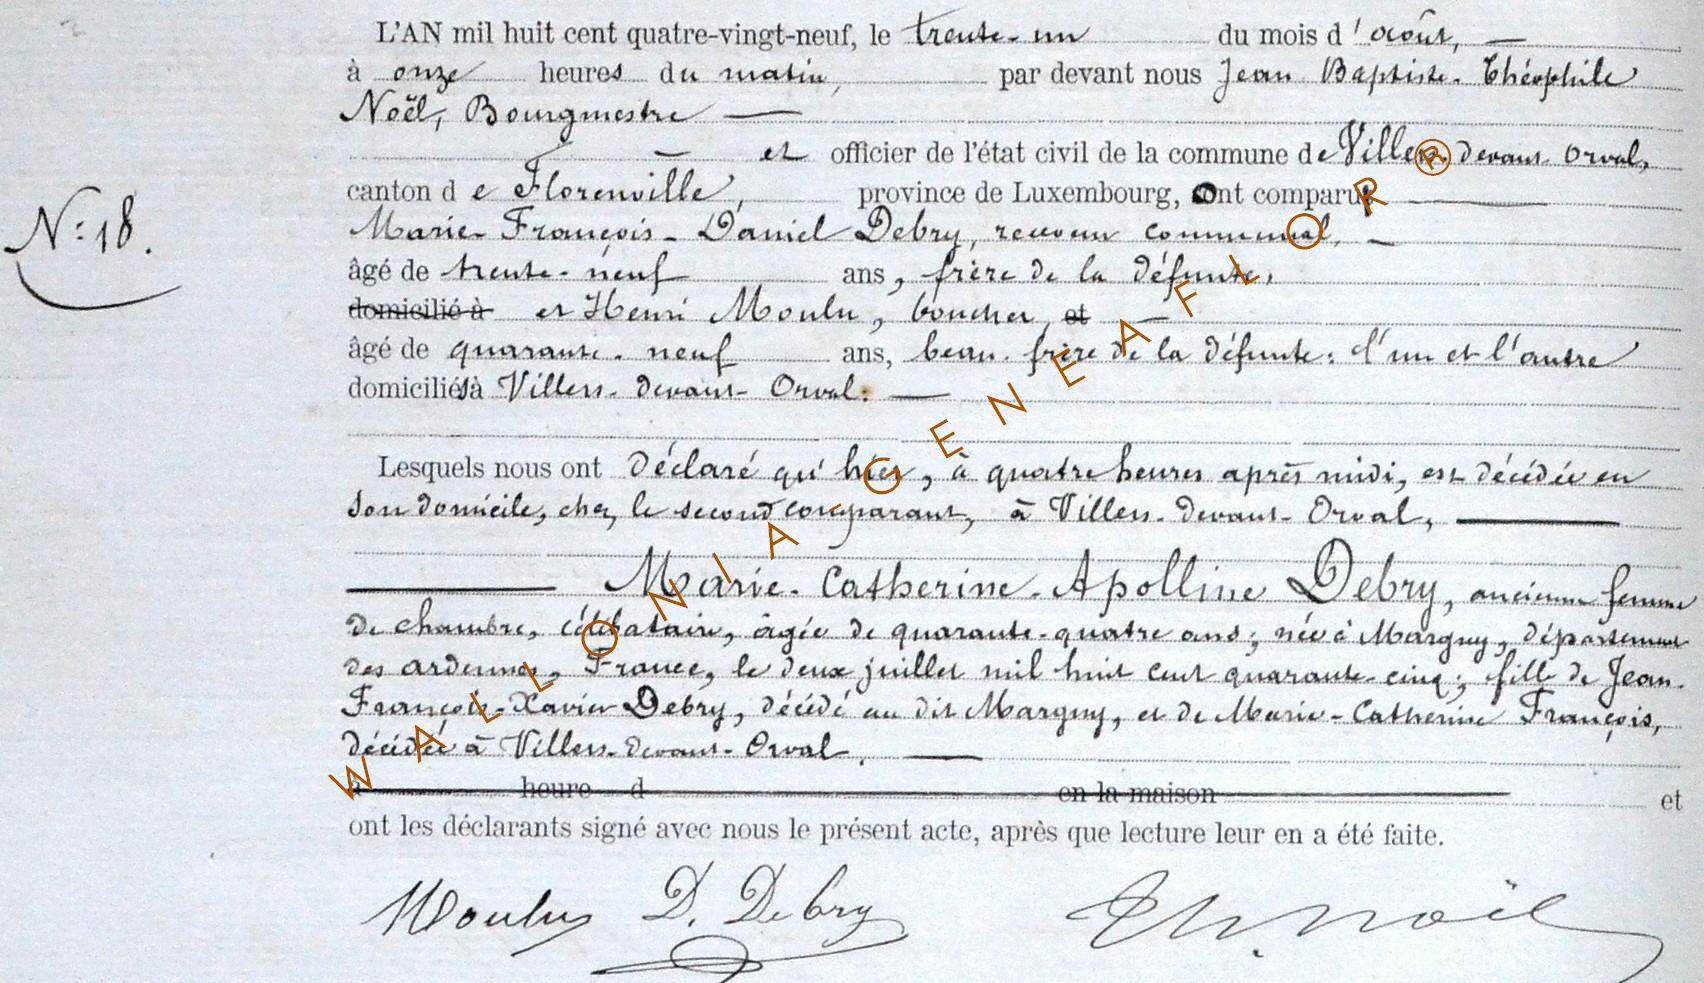 L'AN mil huit cent quatre-vingt-neuf, le trente-un du mois d'août, —
à onze heures du matin, par devant nous Jean Baptiste-Théophile
Noël, Bourgmestre —
— et officier de l'état civil de la commune de Villers-devant-Orval,
N° 18.
canton de Florenville, province de Luxembourg, ont comparus —
Marie-François-Daniel Debry, receveur communal, —
âgé de trente-neuf ans, frère de la défunte,
domicilié à et Henri Moulu, boucher, et —
âgé de quarante-neuf ans, beau-frère de la défunte: l'un et l'autre
domiciliés à Villers-devant-Orval: —
Lesquels nous ont déclaré qu'hier, à quatre heures après midi, est décédée en
son domicile, chez le second comparant, à Villers-devant-Orval, —
— Marie-Catherine-Apolline Debry, ancienne femme
de chambre, célibataire, âgée de quarante-quatre ans; née à Margny, département
des ardennes, France, le deux juillet mil huit cent quarante-cinq; fille de Jean-
François-Xavier Debry, décédé au dit Margny, et de Marie-Catherine François,
décédée à Villers-devant-Orval. —
à heure d en la maison et
ont les déclarants signé avec nous le présent acte, après que lecture leur en a été faite.
Moulu D. Debry Th. Noël
WALLONIAGENEAFLOR R ®